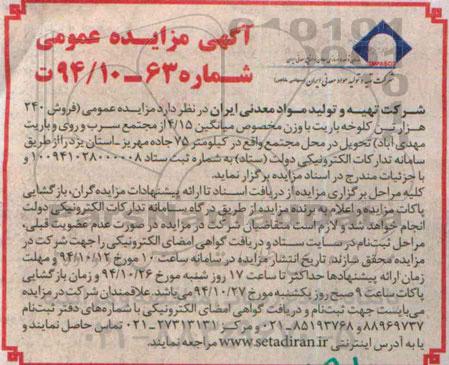 آگهی مزایده عمومی
شماره ۶۳-۹۴/۱۰ت
IMPASCO
شرکت تهیه و تولید مواد معدنی ایران
شرکت تهیه و تولید مواد معدنی ایران در نظر دارد مزایده عمومی (فروش ۲۴۰
هزار تن کلوخه باریت با وزن مخصوص میانگین ۴/۱۵ از مجتمع سرب و روی و باریت
مهدی آباد) تحویل در محل مجتمع واقع در کیلومتر ۷۵ جاده مهریز ـ استان یزد را از طریق
سامانه تدارکات الکترونیکی دولت (ستاد) به شماره ثبت ستاد ۱۰۰۹۴۱۰۲۸۰۰۰۰۸ و
با جزئیات مندرج در اسناد مزایده برگزار نماید.
کلیه مراحل برگزاری مزایده از دریافت اسناد تا ارائه پیشنهادات مزایده گران، بازگشایی
پاکات مزایده و اعلام برنده مزایده از طریق درگاه سامانه تدارکات الکترونیکی دولت
انجام خواهد شد و لازم است متقاضیان شرکت در مزایده در صورت عدم عضویت قبلی،
مراحل ثبت‌نام در سایت ستاد و دریافت گواهی امضای الکترونیکی را جهت شرکت در
مزایده محقق سازند. تاریخ انتشار مزایده در سامانه ساعت ۱۰ مورخ ۹۴/۱۰/۱۲ و مهلت
زمان ارائه پیشنهادها حداکثر تا ساعت ۱۷ روز شنبه مورخ ۹۴/۱۰/۲۶ و زمان بازگشایی
پاکات ساعت ۹ صبح روز یکشنبه مورخ ۹۴/۱۰/۲۷ می‌باشد. علاقمندان شرکت در مزایده
می‌بایست جهت ثبت‌نام و دریافت گواهی امضای الکترونیکی با شماره‌های دفتر ثبت‌نام
۸۸۹۶۹۷۳۷ و ۸۵۱۹۳۷۶۸-۰۲۱ و مرکز ۲۷۳۱۳۱۳۱-۰۲۱ تماس حاصل نمایند و
یا به آدرس اینترنتی www.setadiran.ir مراجعه نمایند.